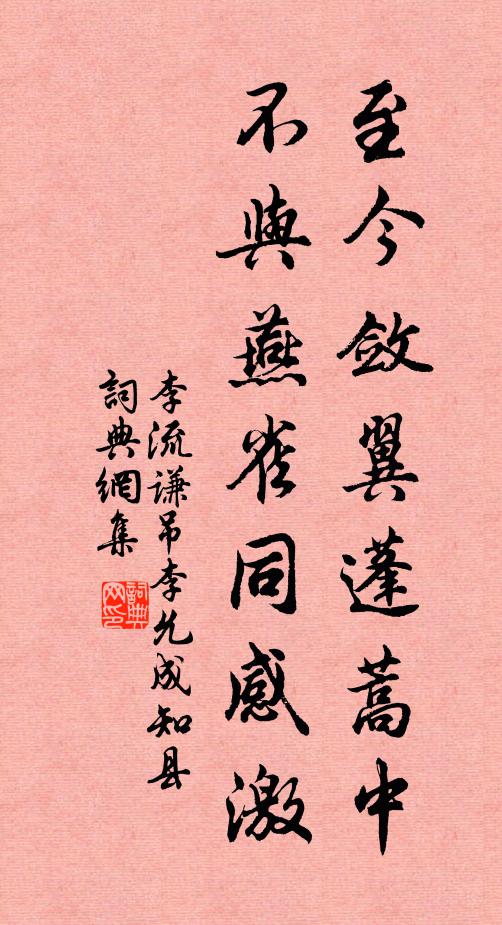 至今斂翼蓬蒿中
不與燕雀同感激
李流谦吊李允成知县
詞典網集
詞典网印